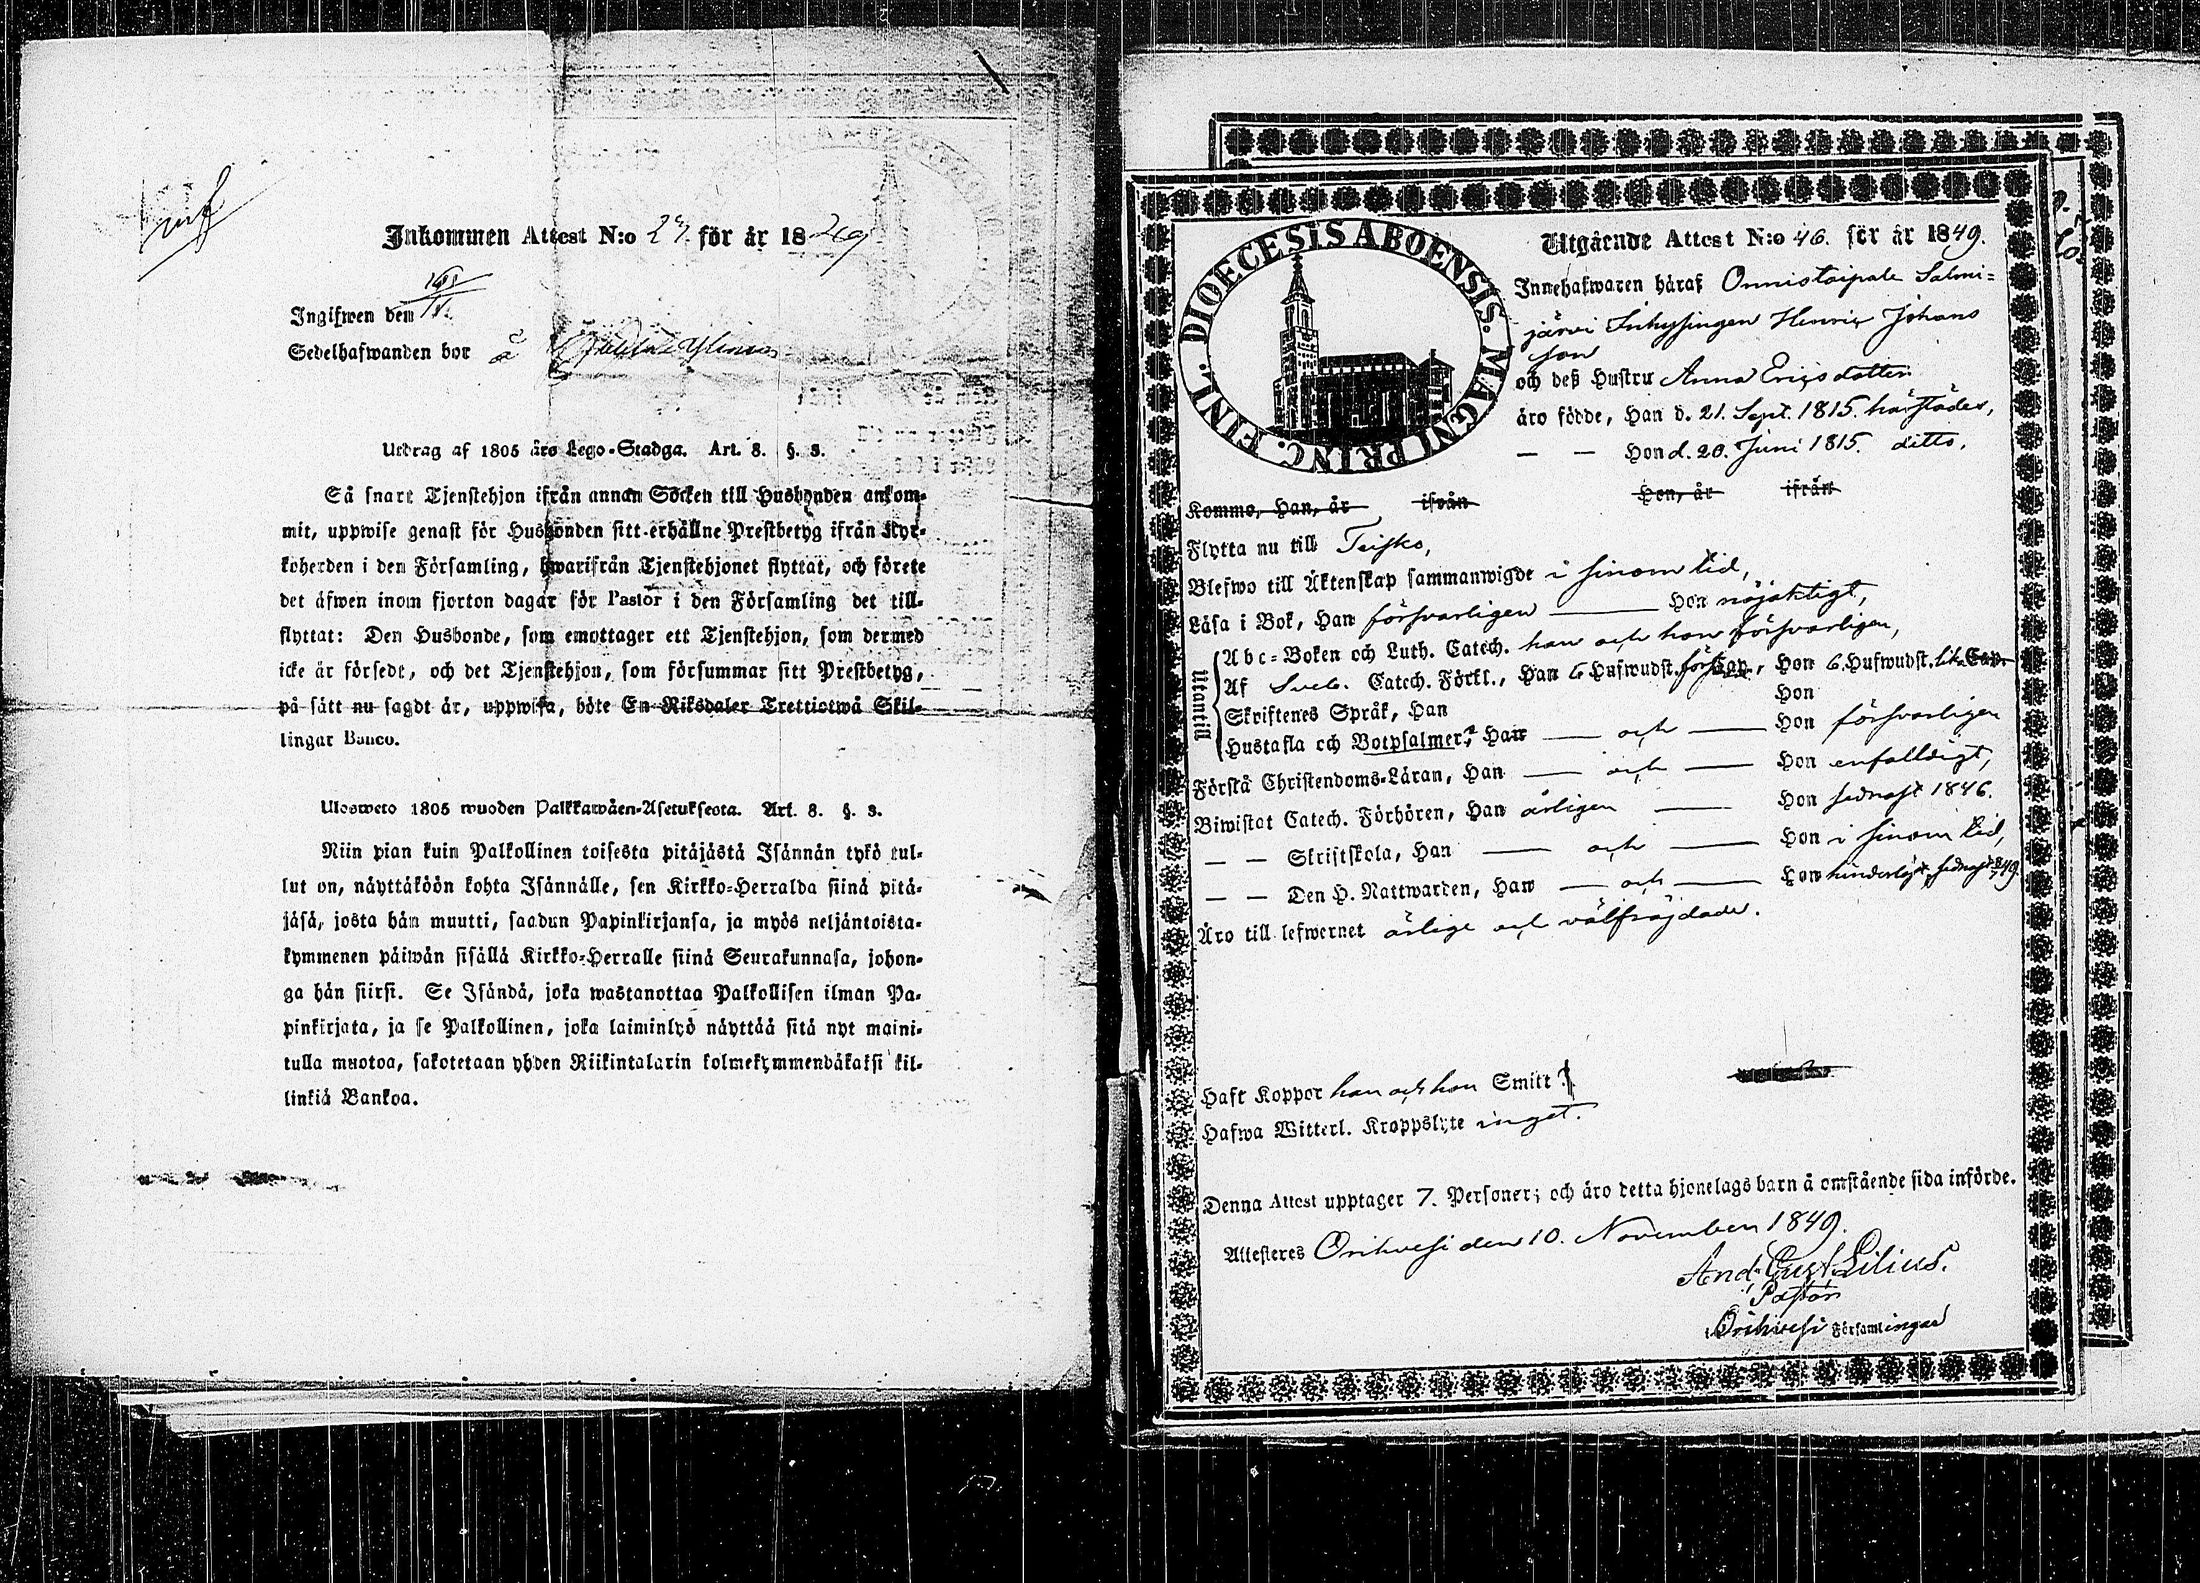 Inkommen Attest N:o 27. för år 1849
Ingifwen dem
Sedelhafwanden bor å
Utdrag af 1805 års Lego-Stadga. Art. 8. §. 3.
Så snart Tjenstehjon ifrån annan Socken till Husbonden ankom-
mit, uppwise genast för Husbonden sitt erhållne Prestbetyg ifrån Kyr-
koherden i den Församling, hwarifrån Tjenstehjonet flyttat, och förete
det äfwen inom fjorton dagar för Pastor i den Församling det till-
flyttat: Den Husbonde, som emottager ett Tjenstehjon, som dermed
icke är försedt, och det Tjenstehjon, som försummar sitt Prestbetyg,
på sätt nu sagdt är, uppwisa, böte En Riksdaler Trettiotwå Skil-
lingar Banco.
Ulosweto 1805 wuoden Palkkawäen-Asetuksesta. Art. 8. §. 3.
Niin pian kuin Palkollinen toisesta pitäjästä Isännän tykö tul-
lut on, näyttäköön kohta Isännälle, sen Kirkko-Herralda siinä pitä-
jäsä, josta hän muutti, saadun Papinkirjansa, ja myös neljäntoista-
kymmenen päiwän sisällä Kirkko-Herralle siinä Seurakunnasa, johon-
ga hän siirsi. Se Isändä, joka wastanottaa Palkollisen ilman Pa-
pinkirjata, ja se Palkollinen, joka laiminlyö näyttää sitä nyt maini-
tulla muotoa, sakotetaan yhden Riikintalarin kolmekymmendäkaksi kil-
linkiä Bankoa.
DIOECESIS ABOENSIS. MAGNI PRINC. FINL.
Utgående Attest N:o 46. för år 1849.
Innehafwaren häraf Onnistaipale Salmi-
järvi Inhysingen Henric Johans
son
och deß Hustru Anna Ericsdotter
äro födde, Han d. 21. Sept. 1815. härstädes,
— — Hon d. 20. Juni 1815. ditto,
Komma, Han, år ifrån Hon, år ifrån
Flytta nu till Teisko,
Blefwo till Äktenskap sammanwigde i sinom tid,
Läsa i Bok, Han försvarligen — Hon nöjaktigt,
Utantill
Abc-Boken och Luth. Catech. han och hon försvarligen,
Af Sveb. Catech. Förkl., Han 6 Hufwudst. förs Cap., Hon 6. Hufwudst. lik. Cap.
Skriftenes Språk, Han Hon
Hustafla och Botpsalmer, Han — och — Hon försvarligen
Förstå Christendoms-Läran, Han — och — Hon enfalldigt,
Biwistat Catech. Förhören, Han årligen — Hon sednast 1846.
— — Skriftskola, Han — och — Hon i sinom tid,
— — Den H. Nattwarden, Han — och — Hon hinderlöst, sednast 1849
Äro till lefwernet ärlige och välfräjdade.
Haft Koppor han och hon Smitt.
Hafwa Witterl. Kroppslyte inget.
Denna Attest upptager 7. Personer; och äro detta hjonelags barn å omstående sida införde.
Attesteres Orihvesi den 10. November 1849.
And. Gust. Lilius.
Pastor
i Orihvesi Församlingar